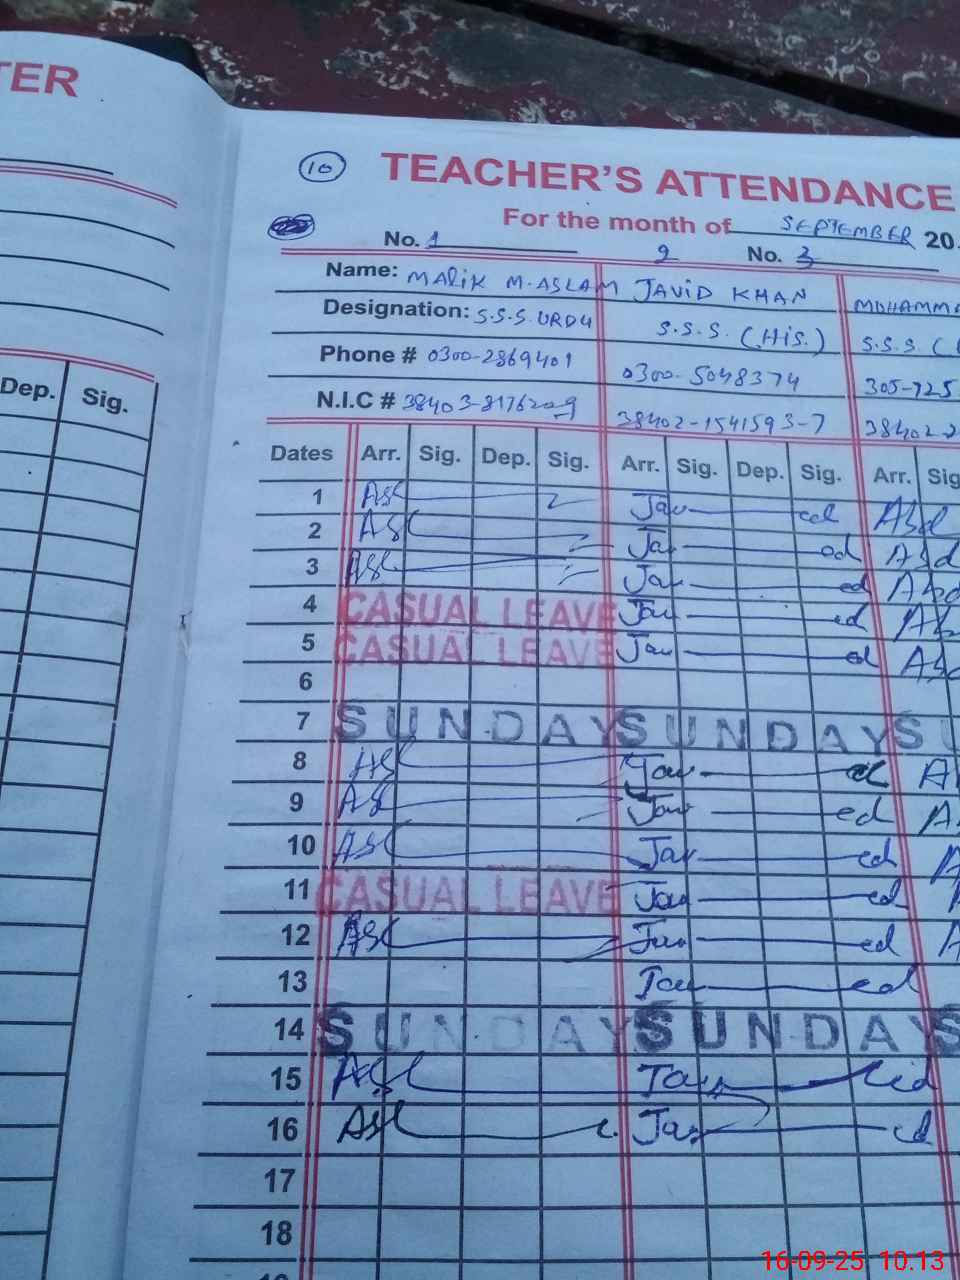 TER
10
TEACHER'S ATTENDANCE
For the month of SEPTEMBER 20
No. 1 2 No. 3
Name: MALIK M. ASLAM JAVID KHAN MOHAMMA
Designation: S.S.S. URDU S.S.S. (HIS.) S.S.S. (
Phone # 0300-2869401 0300-5048374 305-725
N.I.C # 38403-8176209 38402-1541593-7 38402-2
Dep. Sig.
Dates Arr. Sig. Dep. Sig. Arr. Sig. Dep. Sig. Arr. Sig
1 Asl Jav ed Abd
2 Asl Jav ed Abd
3 Asl Jav ed Abd
4 CASUAL LEAVE Jav ed Ab
5 CASUAL LEAVE Jav ed Abd
6
7 SUNDAY SUNDAY SU
8 Asl Jav ed A
9 Asl Jav ed A
10 Asl Jav ed A
11 CASUAL LEAVE Jav ed A
12 Asl Jav ed A
13 Jav ed
14 SUNDAY SUNDAY S
15 Asl Jav id
16 Asl Jav ed
17
18
16-09-25 10.13